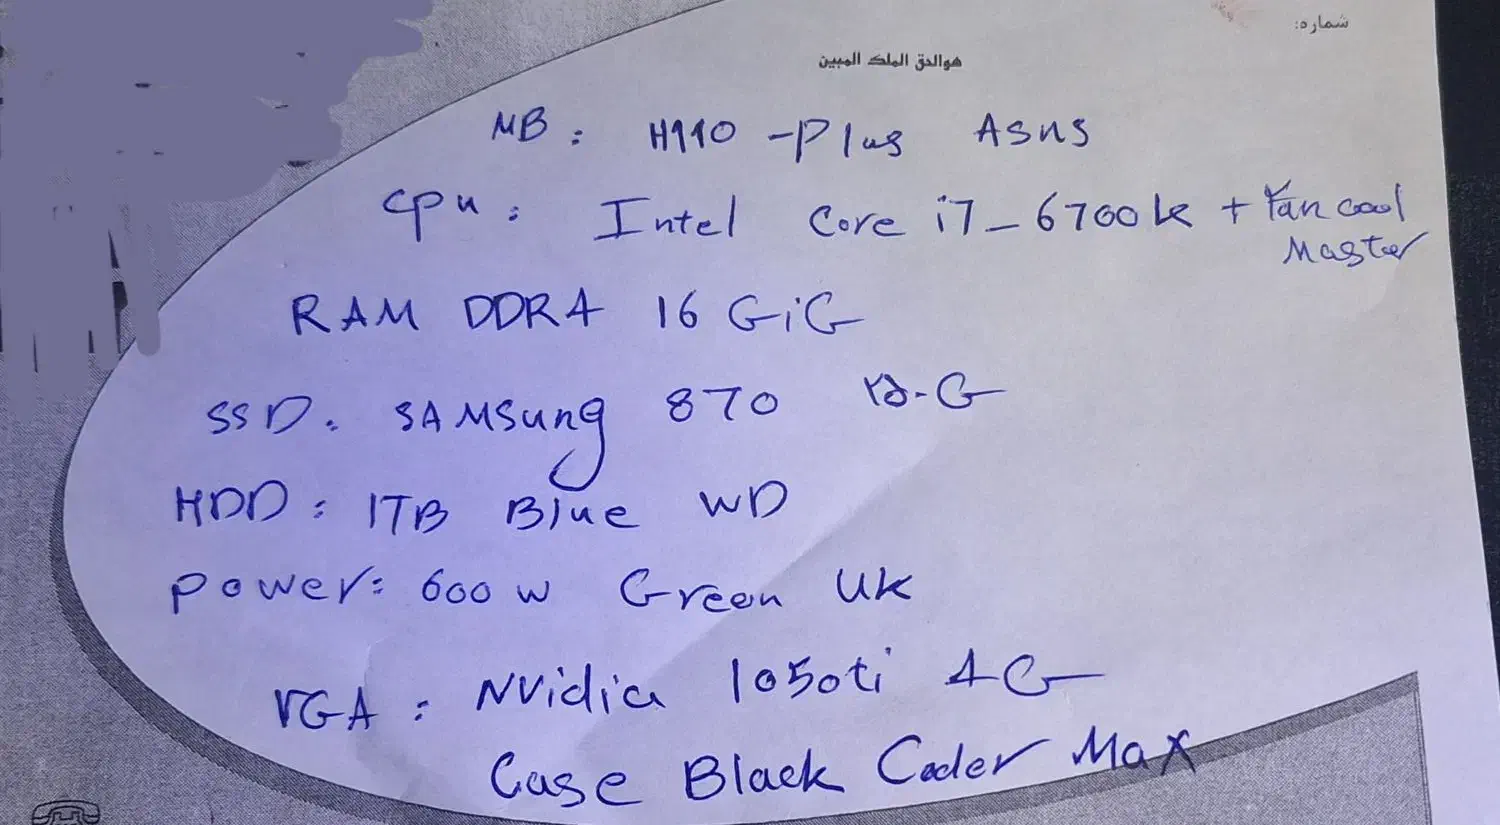 شماره:
هوالحق الملک المبین
MB: H110 -Plus Asus
cpu: Intel Core i7_6700k + Fan cool
Master
RAM DDR4 16 GiG
SSD. SAMSung 870 ۲۵۰G
HDD: 1TB Blue WD
power: 600 w Green UK
VGA: NVidia 1050ti 4G
Case Black Coder Max